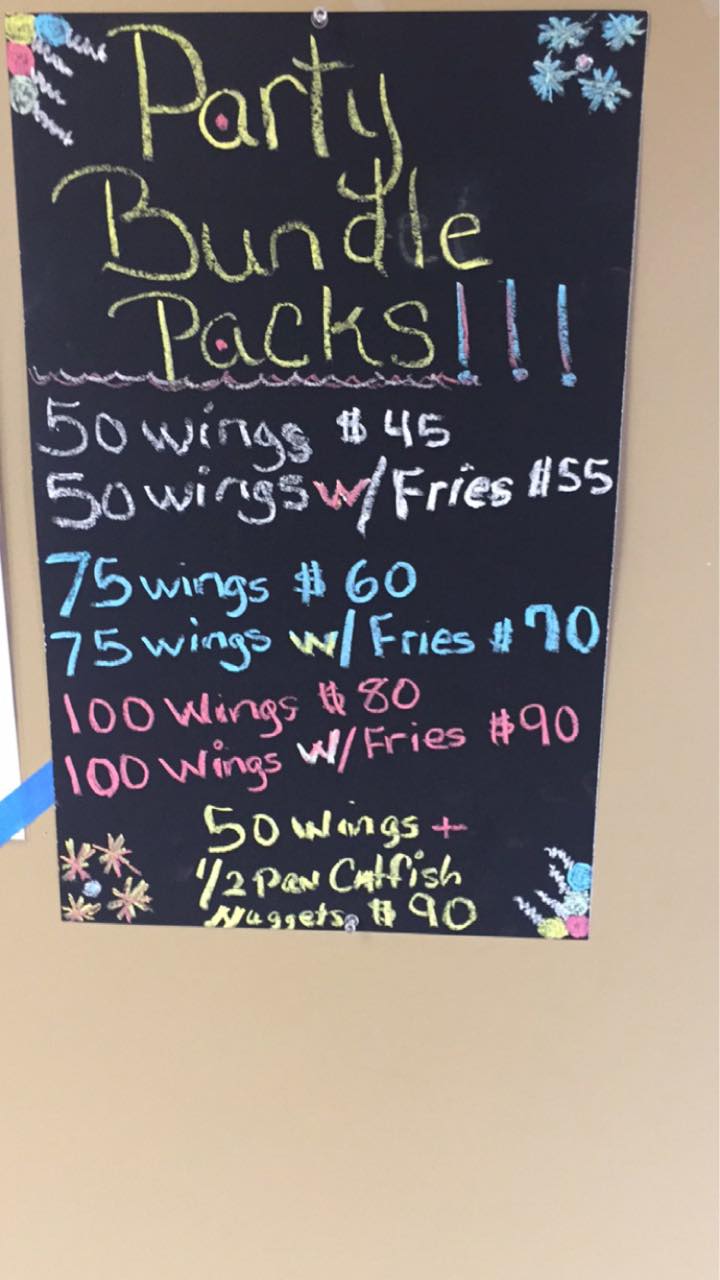 Party
Bundle
Packs!!!
50 wings $45
50 wings w/Fries $55
75 wings $60
75 wings w/Fries $70
100 Wings $80
100 Wings w/Fries $90
50 Wings +
1/2 Pan Catfish
Nuggets $90